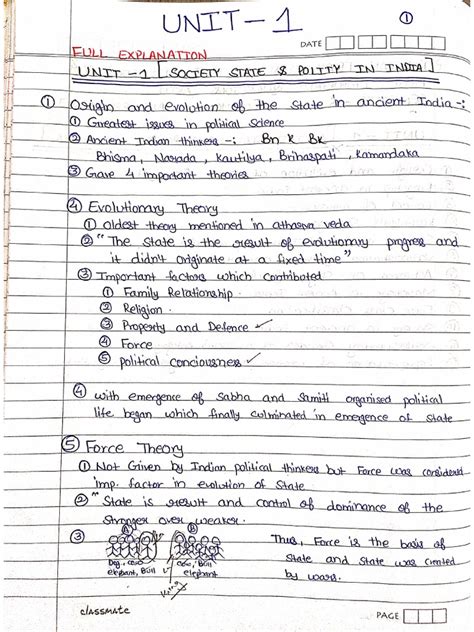 UNIT-1
①
DATE
FULL EXPLANATION
UNIT-1 [SOCIETY STATE & POLITY IN INDIA]
① Origin and evolution of the state in ancient India -:
① Greatest issues in political science
② Ancient Indian thinkers -: Bn K Bk
Bhisma, Narada, Kautilya, Brihaspati, Kamandaka
③ Gave 4 important theories
④ Evolutionary Theory
① Oldest theory mentioned in atharva veda
② "The state is the result of evolutionary progress and
it didn't originate at a fixed time"
③ Important factors which contributed
① Family Relationship.
② Religion.
③ Property and Defence ✓
④ Force
⑤ political conciousness ✓
④ with emergence of Sabha and Samiti organised political
life began which finally culminated in emergence of state
⑤ Force Theory
① Not Given by Indian political thinkers but Force was considered
imp. factor in evolution of State
② "State is result and control of dominance of the
stronger over weaker.
③ A B Thus, Force is the basis of
state and state was created
by wars.
Dog, cow cow, Bull
elephant, Bull elephant
King
classmate
PAGE